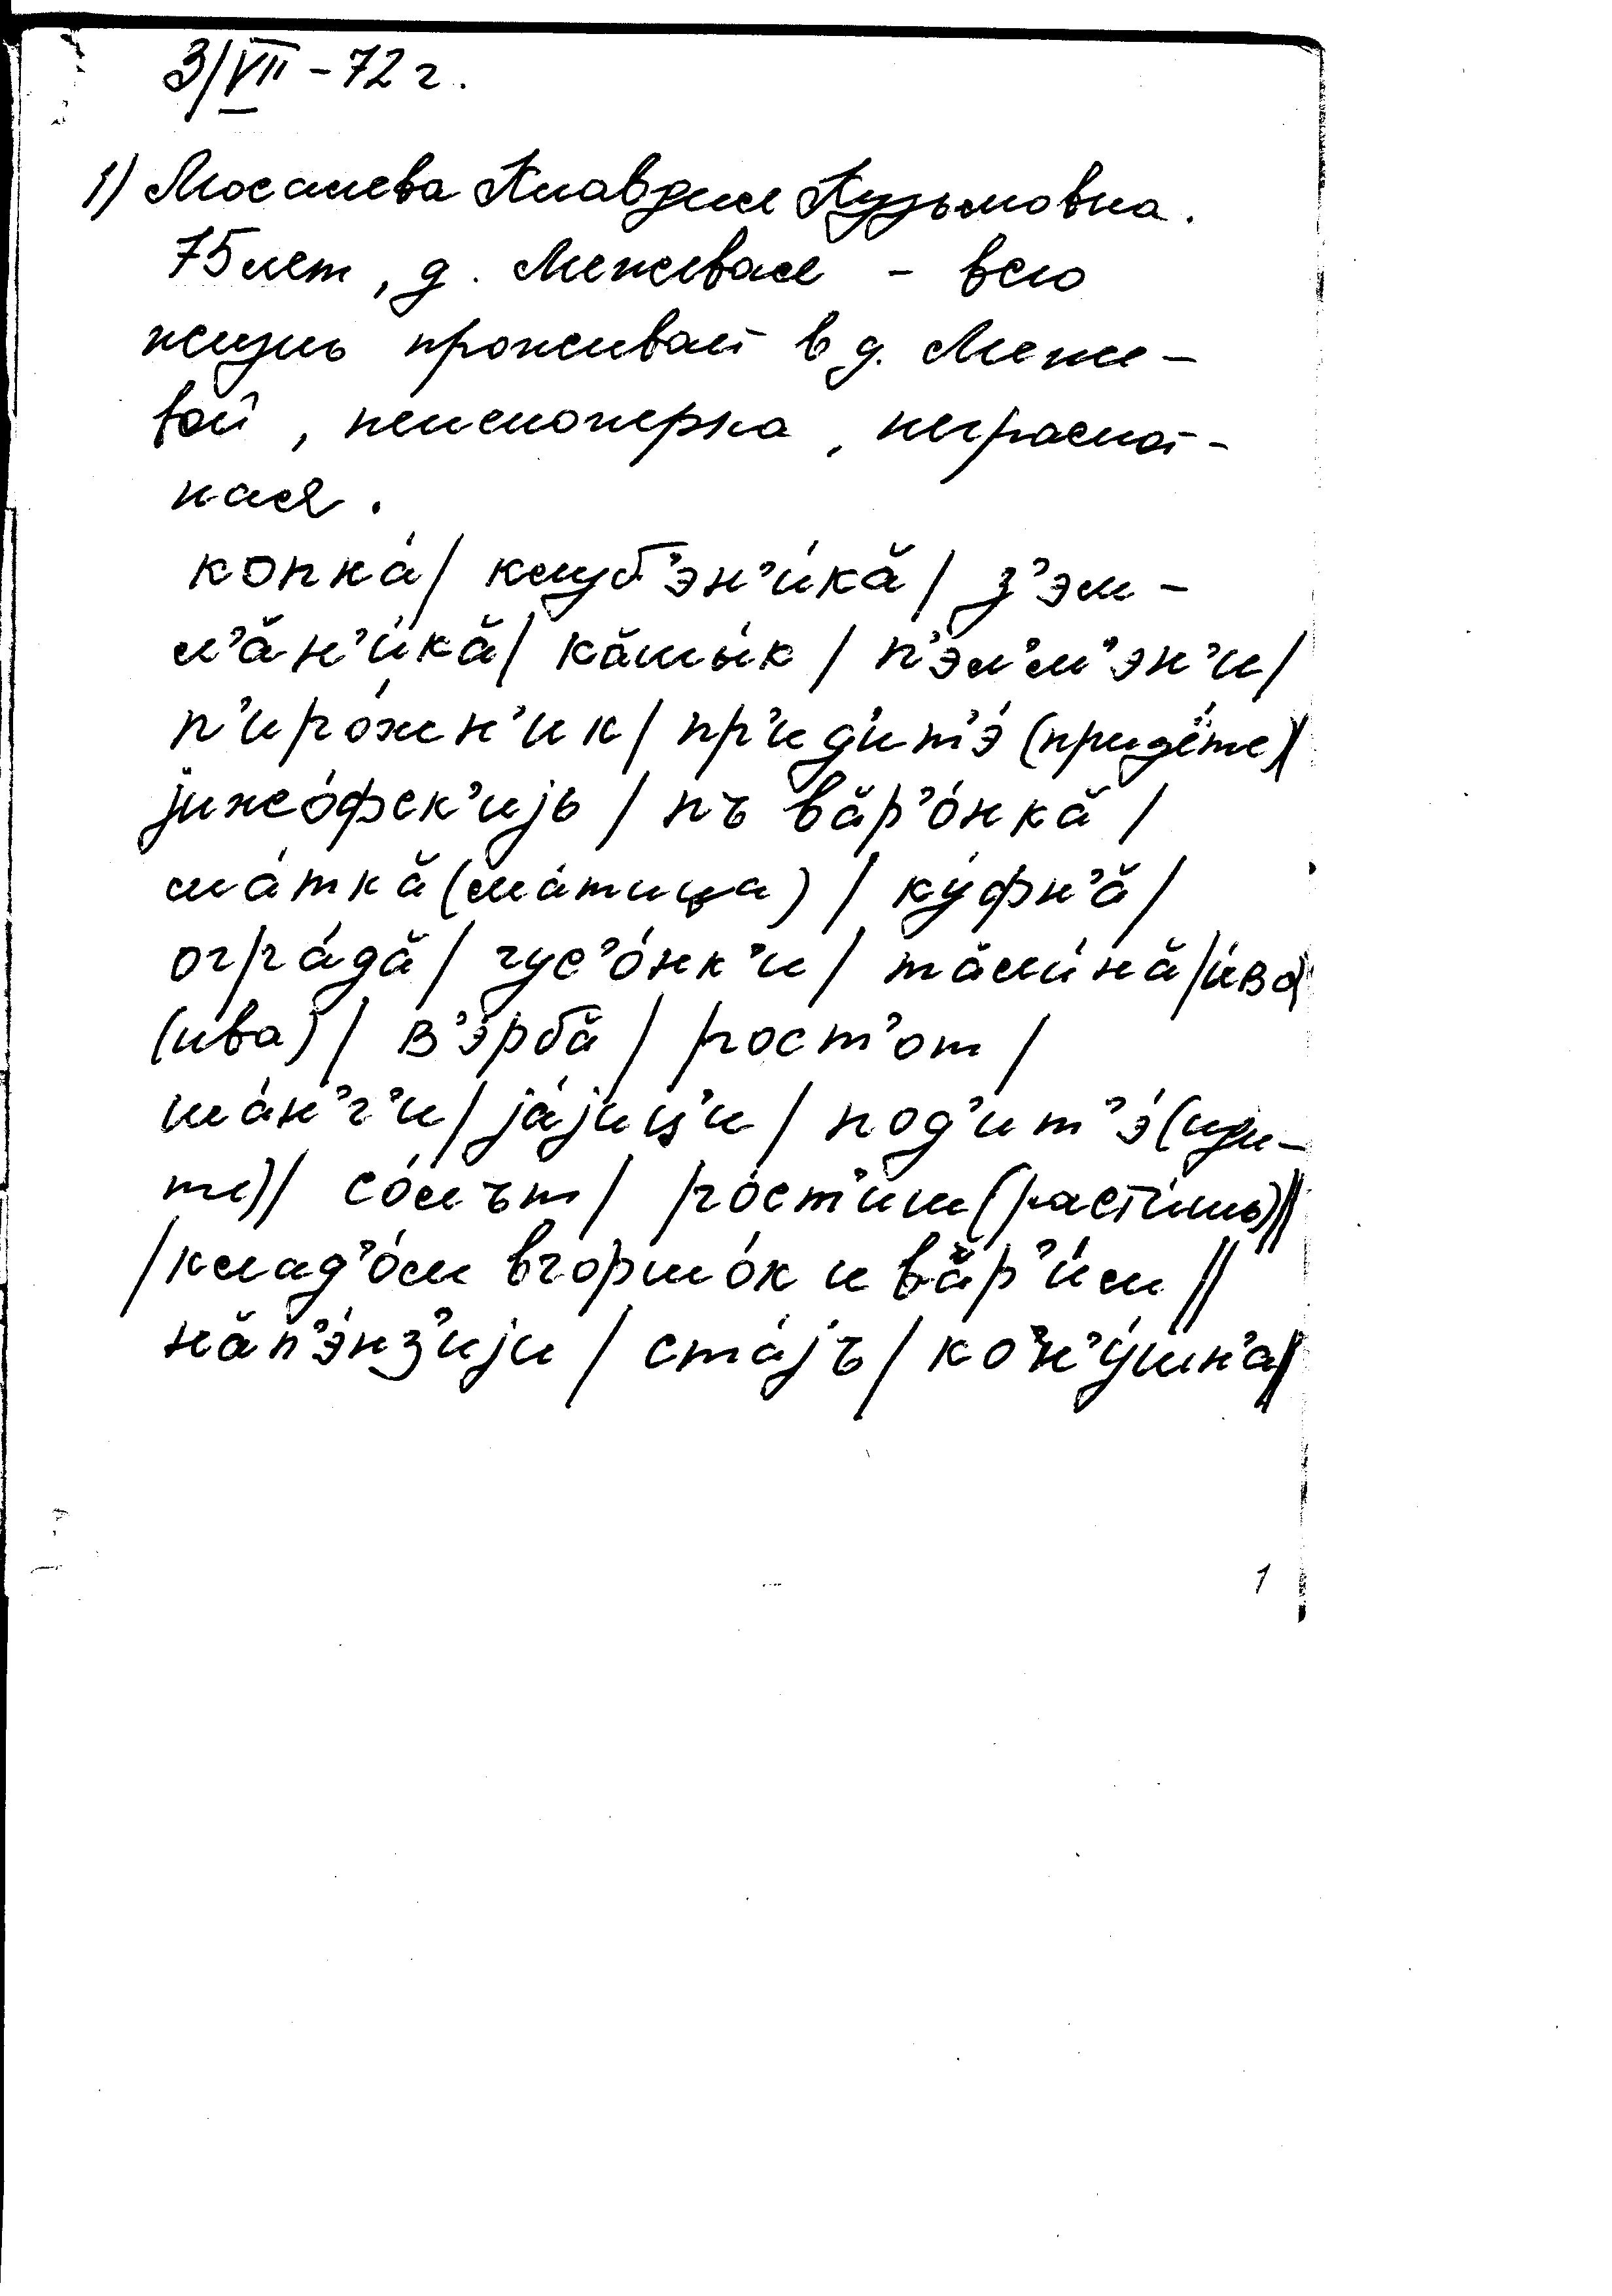 3/VII – 72 г.
1) Мосалева Клавдия Кузьмовна.
75 лет, д. Межевая – всю
жизнь проживает в д. Меже-
вой, пенсионерка, неграмот-
ная.
копна́ / клуб’эн’и́кӑ / з’эм-
л’ӑн’и́кӑ / кӑты́к / п’эл’м’эн’и /
п’иро́жн’ик / пр’ид’ит’э́ (придёте) /
јижо́фск’иjь / пъ вӑр’о́нкӑ /
ма́ткӑ (ма́тица) / ку́фн’ӑ /
огра́дӑ / гус’о́нк’и / тӑли́нӑ / и́во
(ива) / в’э́рбӑ / рост’от /
ша́н’г’и / jа́jиц’и / под’ит’э́ (иди-
те) / со́лът / ро́ст’иш (расти́шь) //
/ клад’о́м в горшо́к и вӑр’и́м //
нӑ п’э́нз’иjи / ста́jъ / кон’у́шн’а //
1